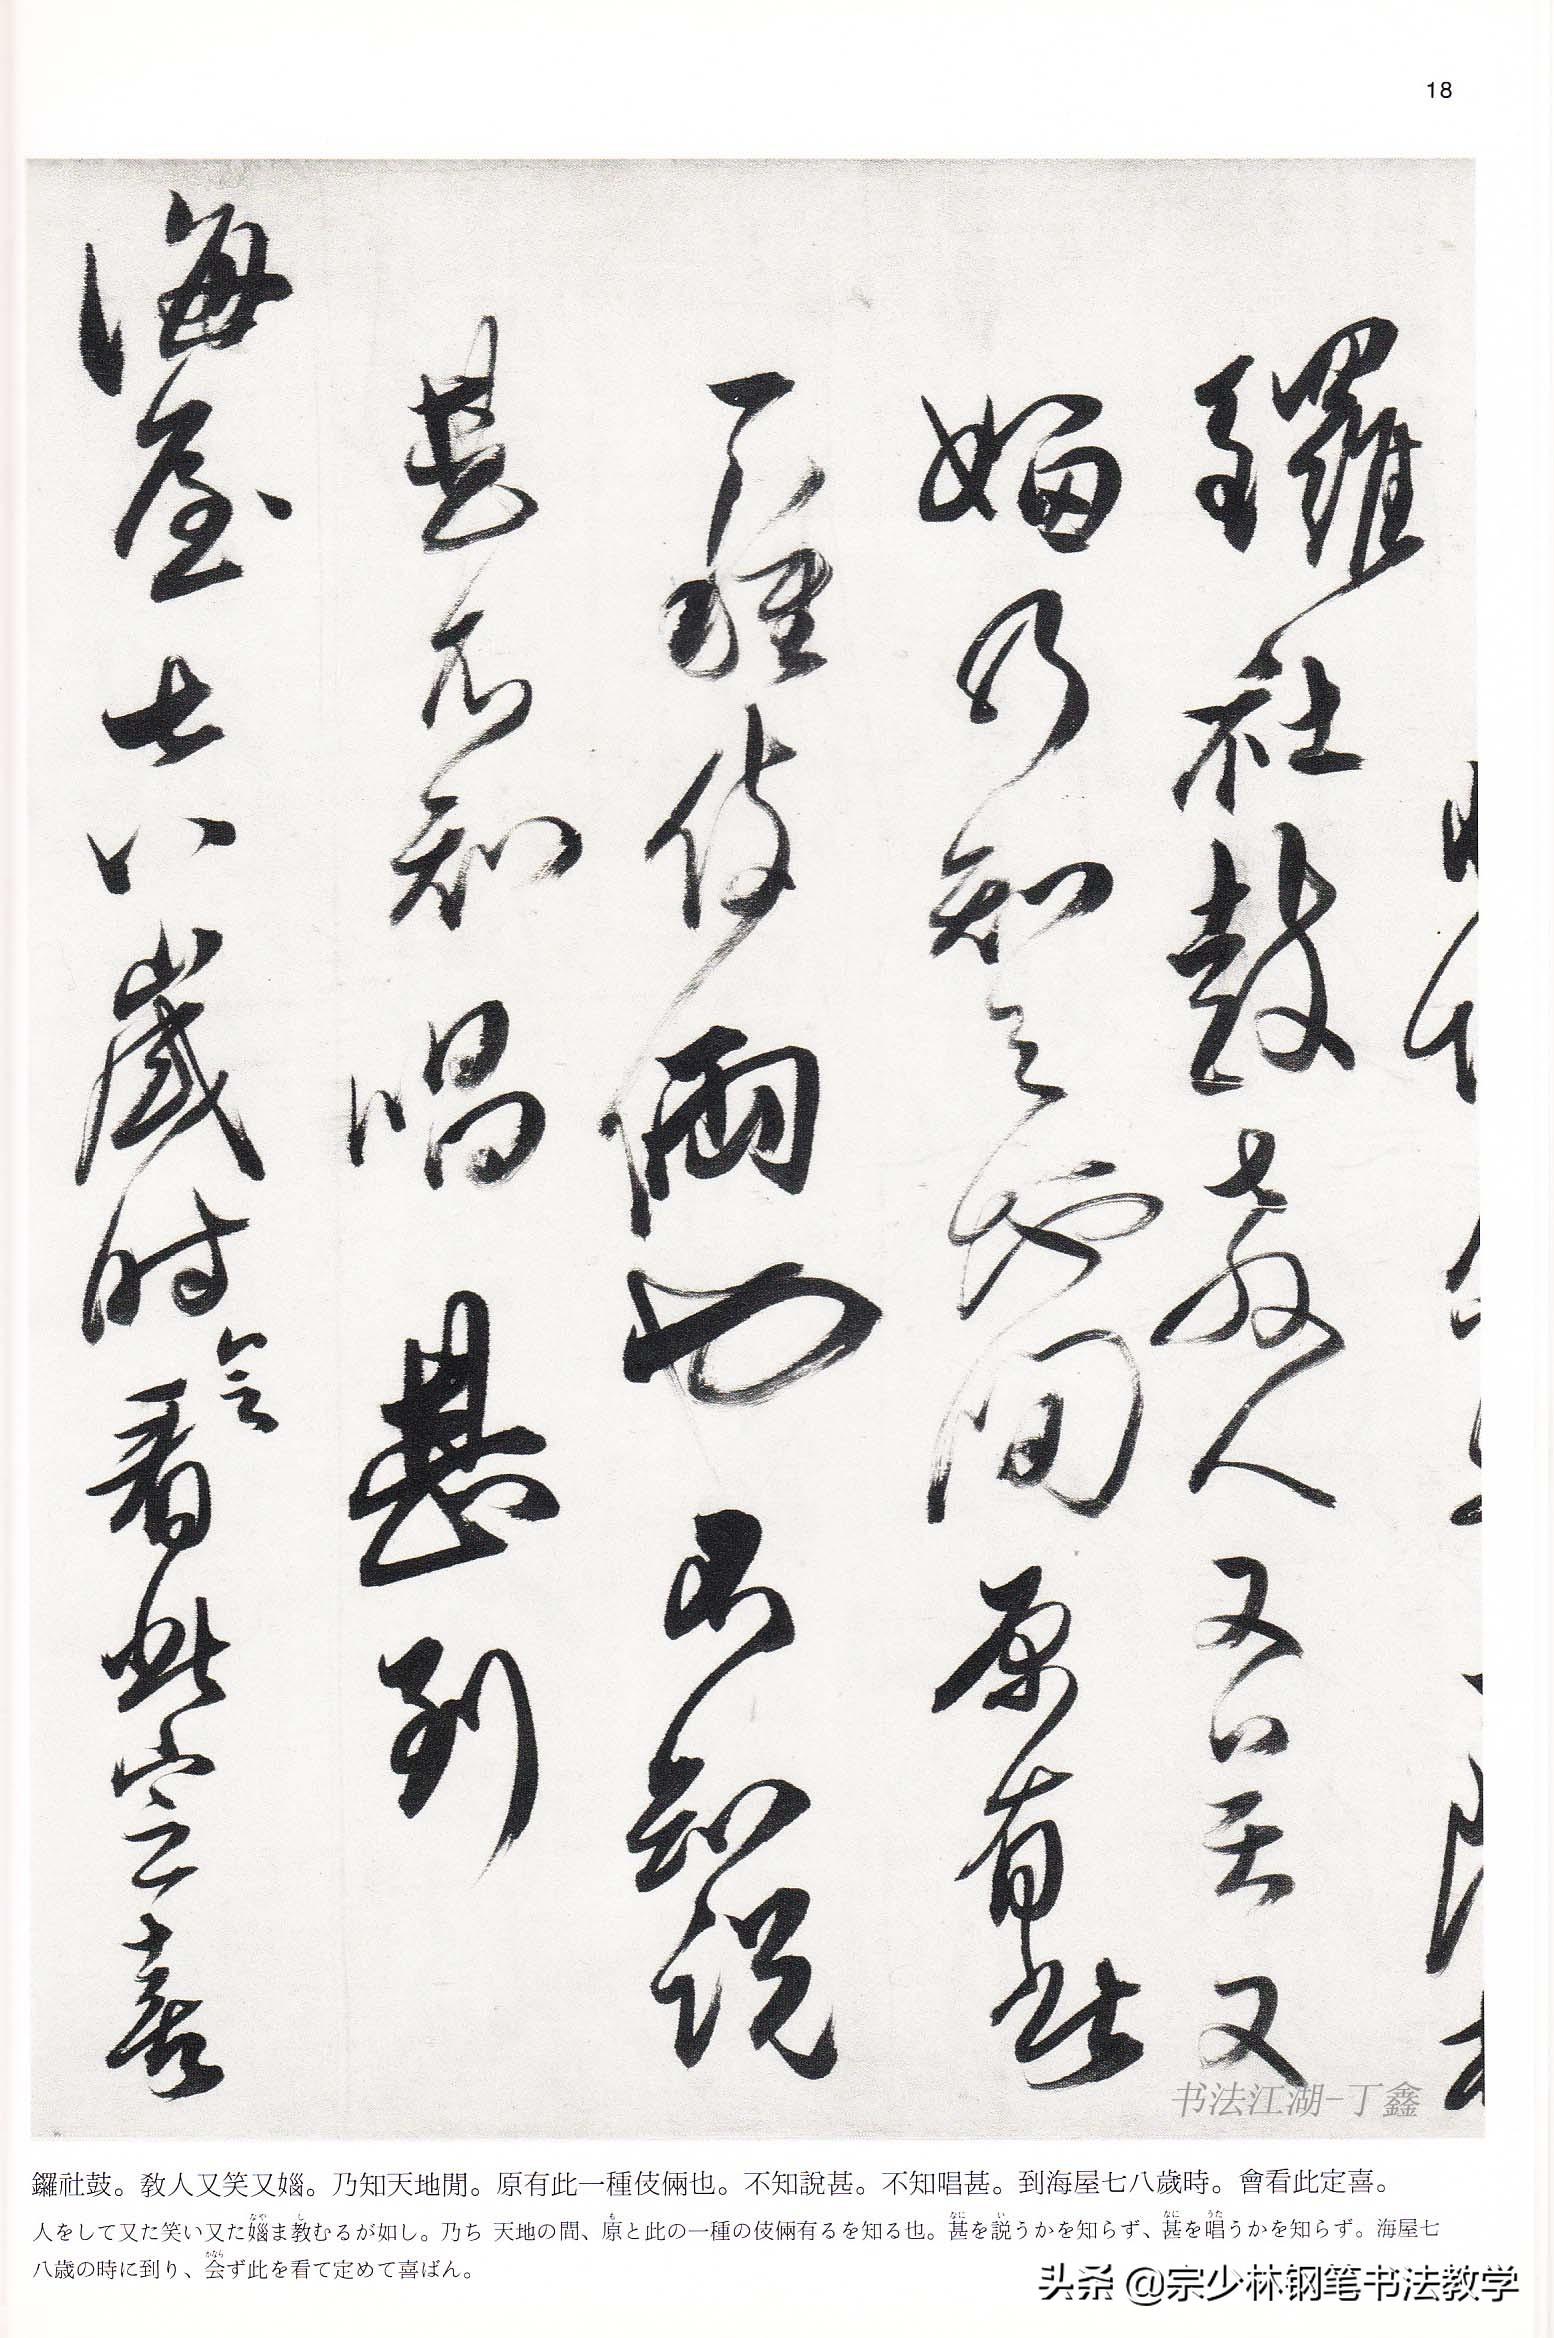 18
鑼社鼓教人又笑又
媼乃知天地間原有此
一種伎倆也不知說
甚不知唱甚到
海屋七八歲時會看此定喜
书法江湖-丁鑫
鑼社鼓。教人又笑又媼。乃知天地閒。原有此一種伎倆也。不知說甚。不知唱甚。到海屋七八歲時。會看此定喜。
人をして又た笑い又た媼ま教むるが如し。乃ち 天地の間、原と此の一種の伎倆有るを知る也。甚を説うかを知らず、甚を唱うかを知らず。海屋七
八歳の時に到り、会ず此を看て定めて喜ばん。
头条 @宗少林钢笔书法教学